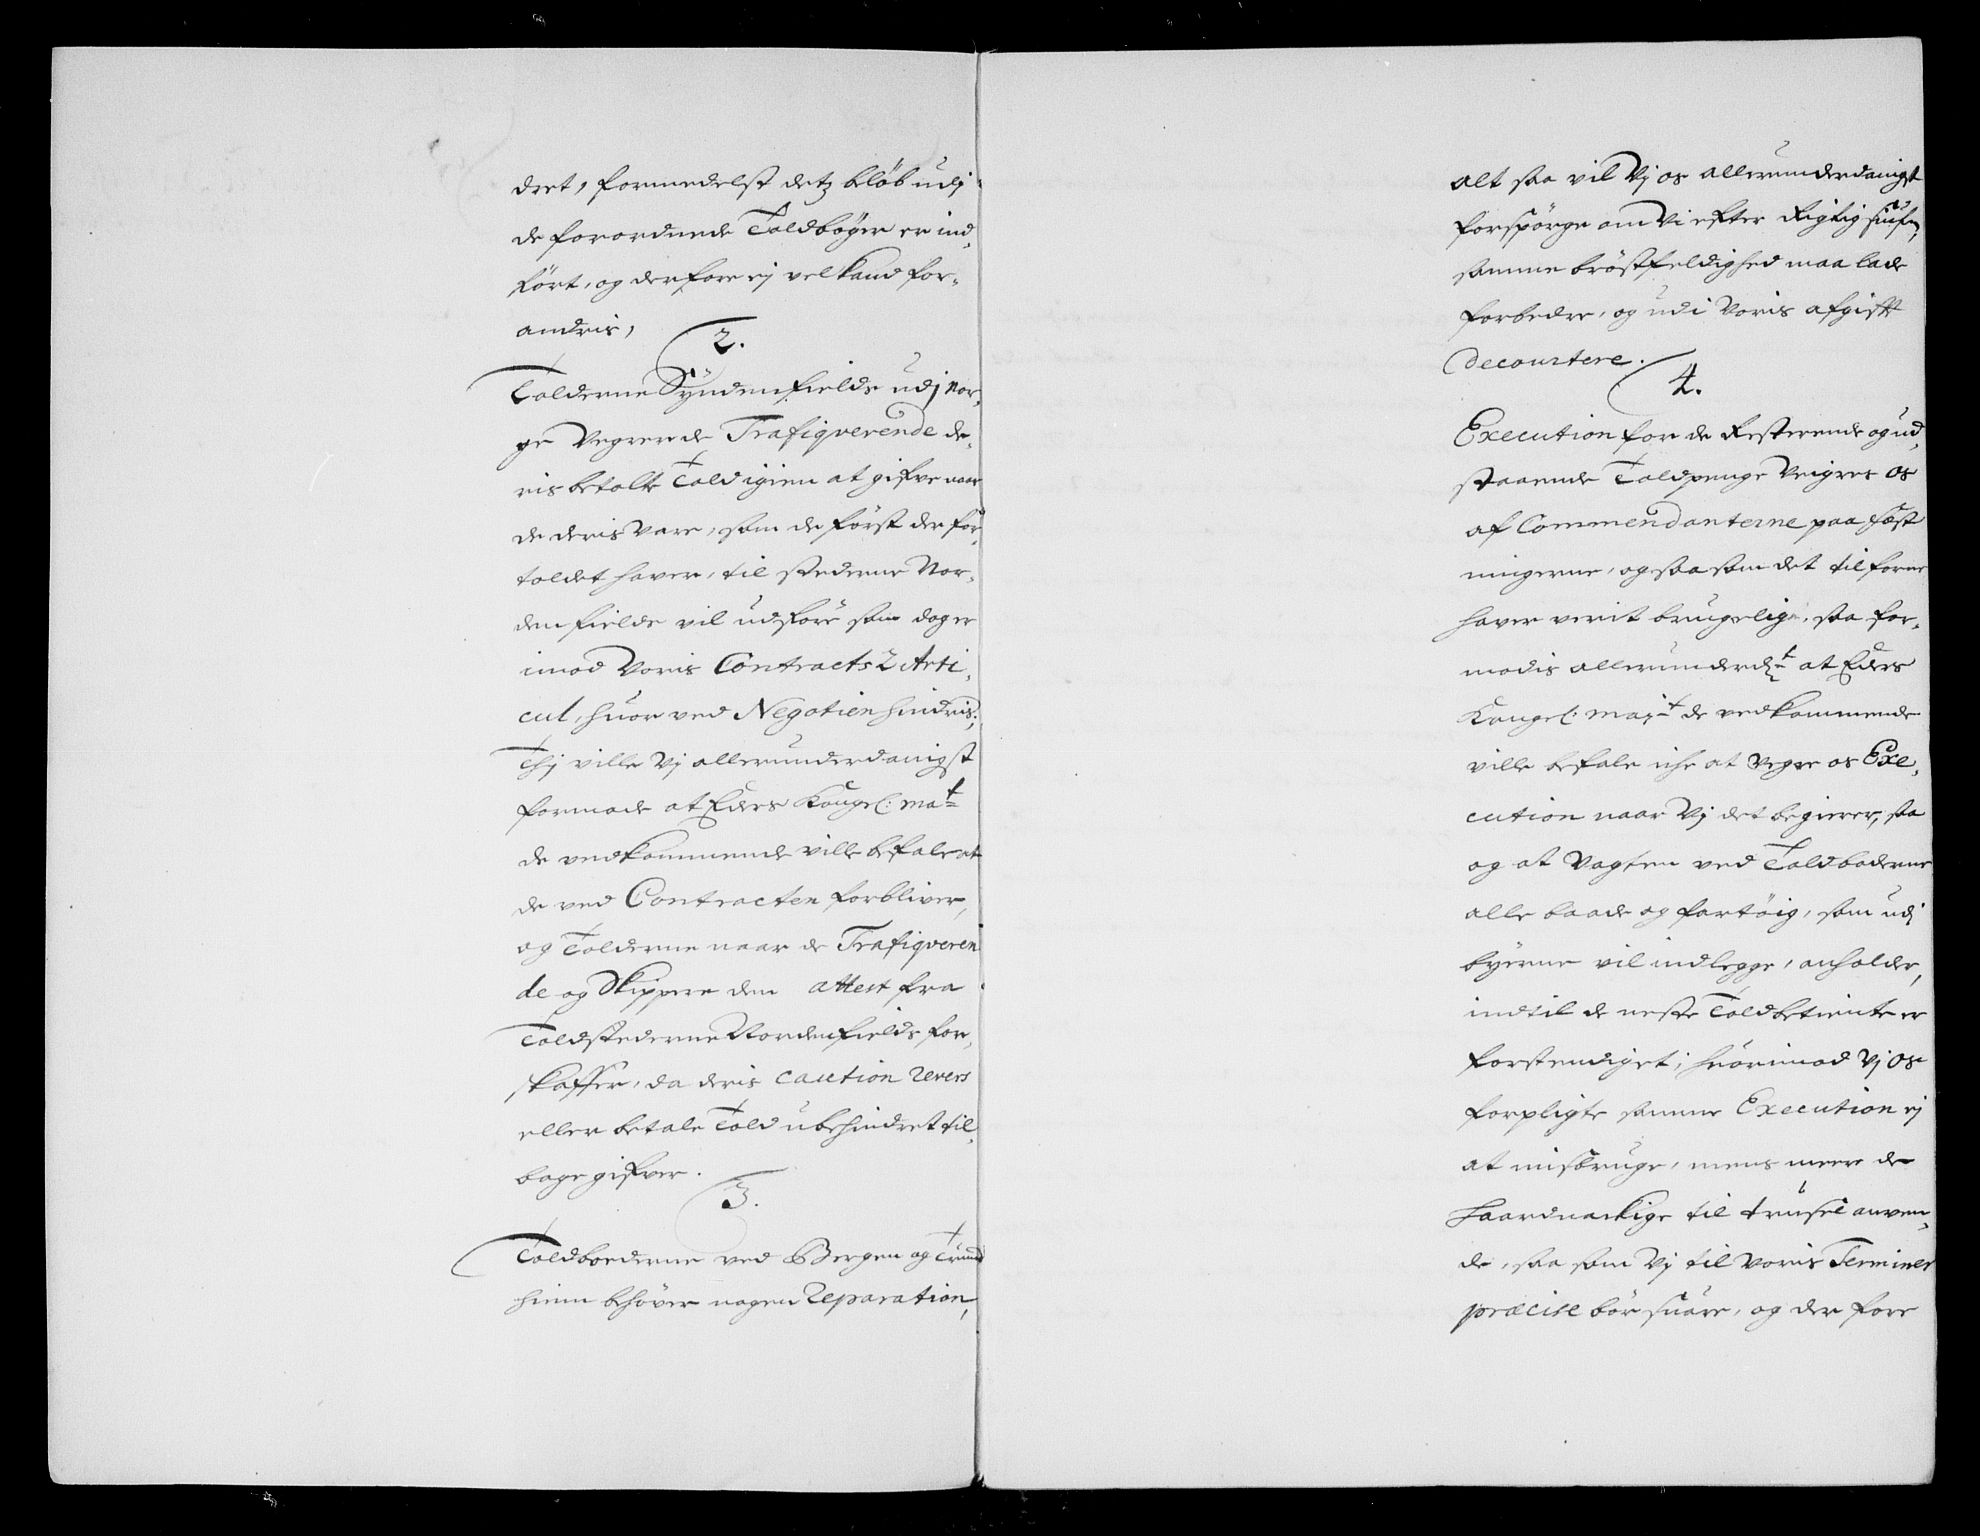 dret, formedelst detz beløb udj
de forordnede Toldbøger er ind-
ført, og derfore ej vel kand for-
andris,
2.
Tolderne Syndenfields udj Nor-
ge Vegrer de Trafiqverende de-
ris betalte Told igien at gifve naar
de deris Vare, som de først der for-
toldet hafver, til stederne Nor-
denfields vil udføre som dog er
imod Voris Contracts 2 Arti-
cul, huor ved Negotien hindris;
Thj ville Vj allerunderdanigst
formode at Eders Kongel: Ma:t
de vedkommende ville befale at
de ved Contracten forbliver,
og Tolderne naar de Trafiqveren
de og Skippere den attest fra
Toldstederne Nordenfields for-
skaffer, da deris Caution Revers
eller betalte Told ubehindret til-
bage gifver.
3.
Toldboederne ved Bergen og Trund
hiem behøver nogen Reparation,
alt saa vil Vj os allerunderdanigst
forspørge om Vi efter Rigtig
samme brøstfeldighed maa lade
forbedre, og udi Voris afgift
decourtere.
4.
Execution for de Resterende og ud-
staaende Toldpenge Veigres os
af Commendanterne paa fæst
ningerne, og saa som det tilforne
hafver verit brugelig, saa for-
modis allerunderd:t at Eders
Kongel: May:t de vedkommende
ville befale iche at Vegre os Exe-
cution naar Vj det begierer, saa
og at Vagten ved Toldboderne
alle baade og fartøig, som udj
byerne vil indlegge, anholder,
indtil de neste Toldbetiente er
forstendiget; huorimod Vj os
forpligte samme Execution ej
at misbruge, mens meere de
haardnackige til trusel anven-
de, saa som Vj til Voris Terminer
præcise bør suare, og der fore